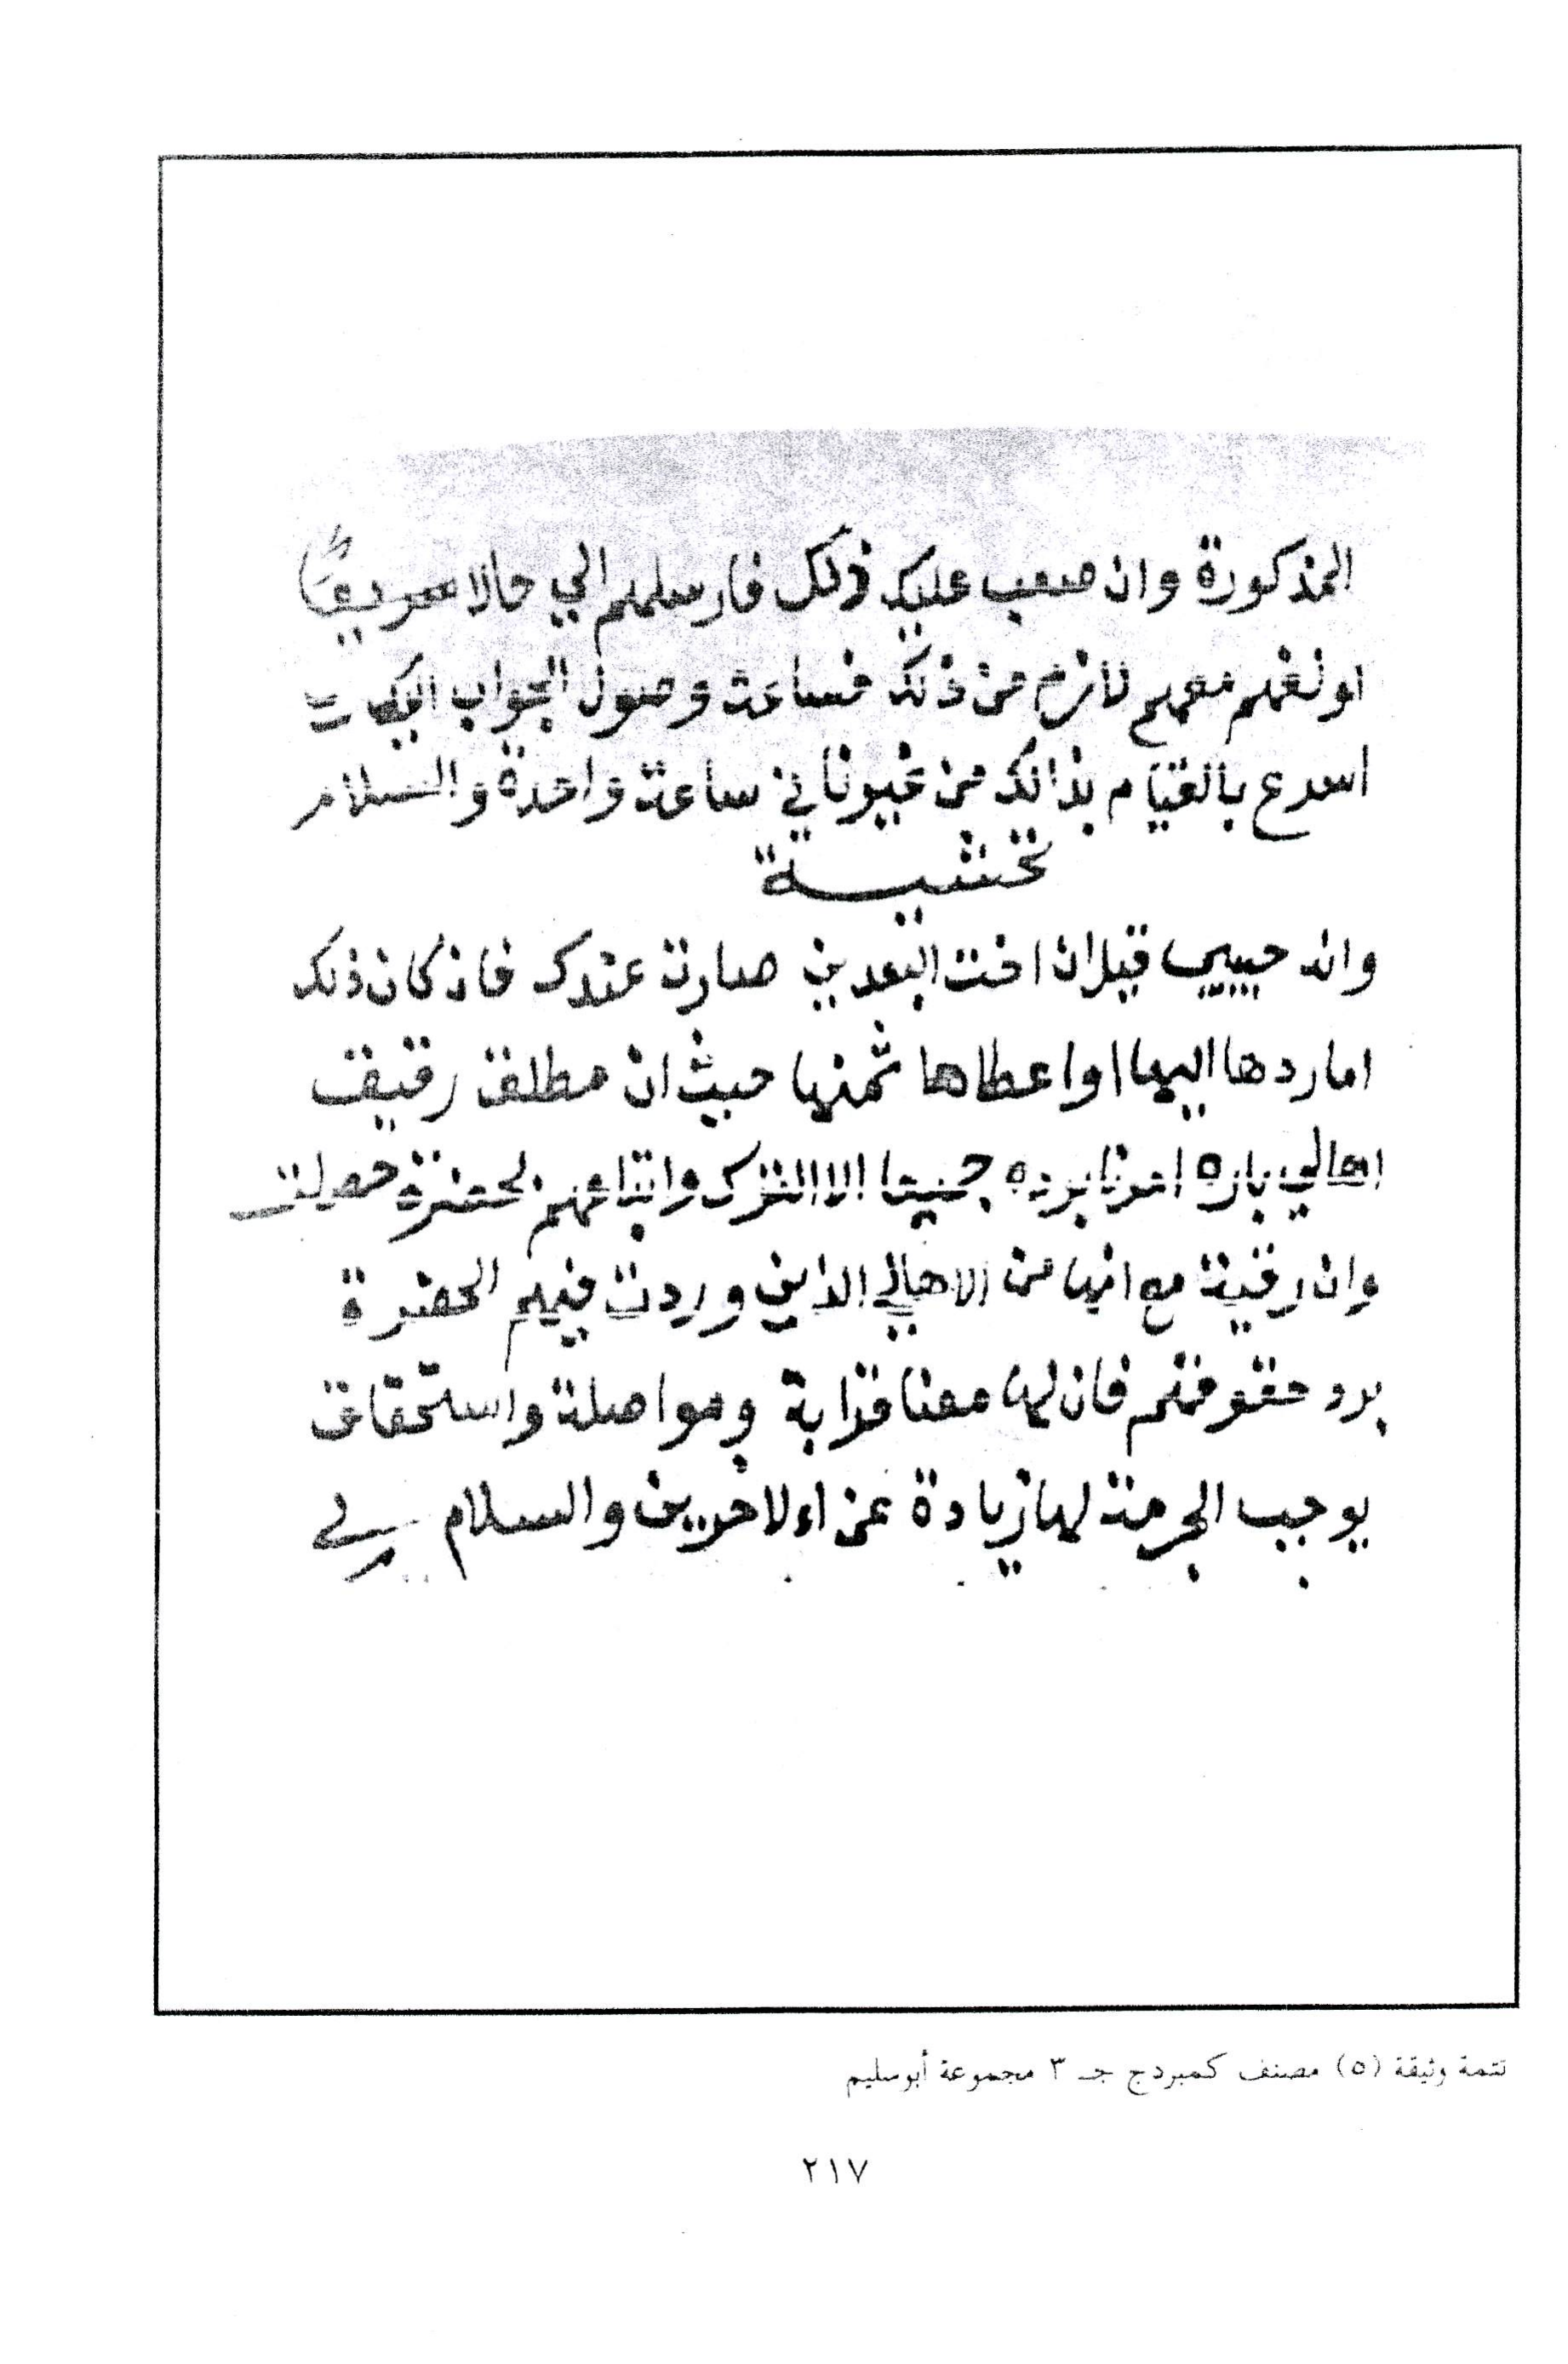 المذكورة وان صعب عليك ذلك فارسلهم الي حالا سريعاً
معهم لازم من ذلك فساعة وصول الجواب اليك
اسرع بالقيام بذالك من غير وناني ساعة واحدة والسلام
تحشية
وانه حبيبي قيل ان اخت البعدين صارت عندك فان كان ذلك
اما ردها اليها او اعطاها ثمنها حيث ان مطلق رقيق
اهالي باره امرنا برده جميعا الا الترك واتباعهم لحضرة حصلت
وان رقية مع انها من الاهالي الذين وردت فيهم الحضرة
برد حقوقهم فان لها معنا قرابة ومواصلة واستحقاق
يوجب الحرمة لها زيادة عن اولاخرين والسلام
تتمة وثيقة (٥) مصنف كمبردج جـ ٣ مجموعة أبو سليم
٢١٧